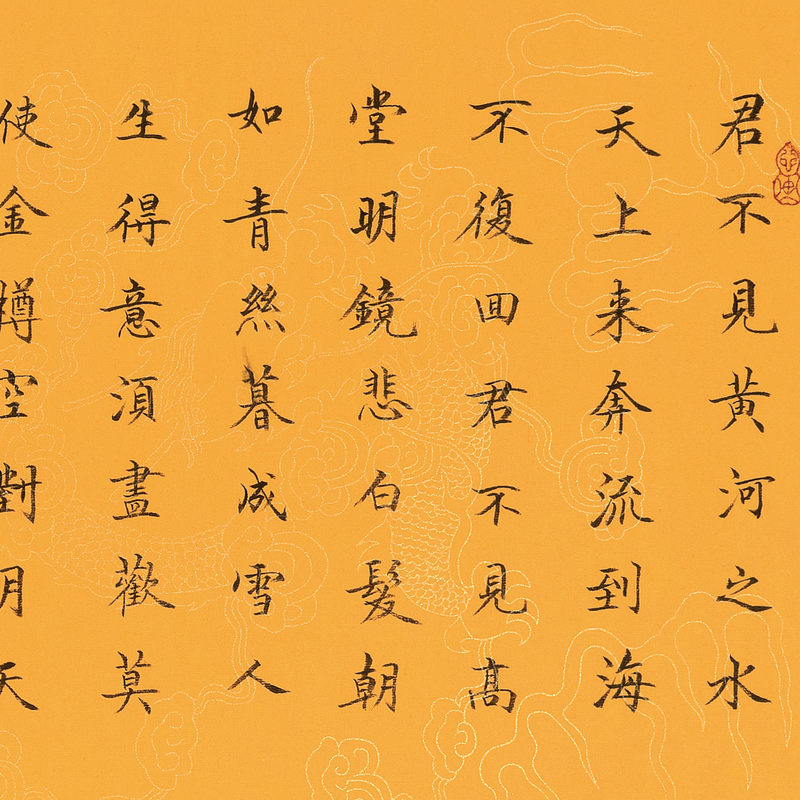 君不見黄河之水
天上来奔流到海
不復囬君不見髙
堂明鏡悲白髮朝
如青絲暮成雪人
生得意須盡歡莫
使金樽空對月天